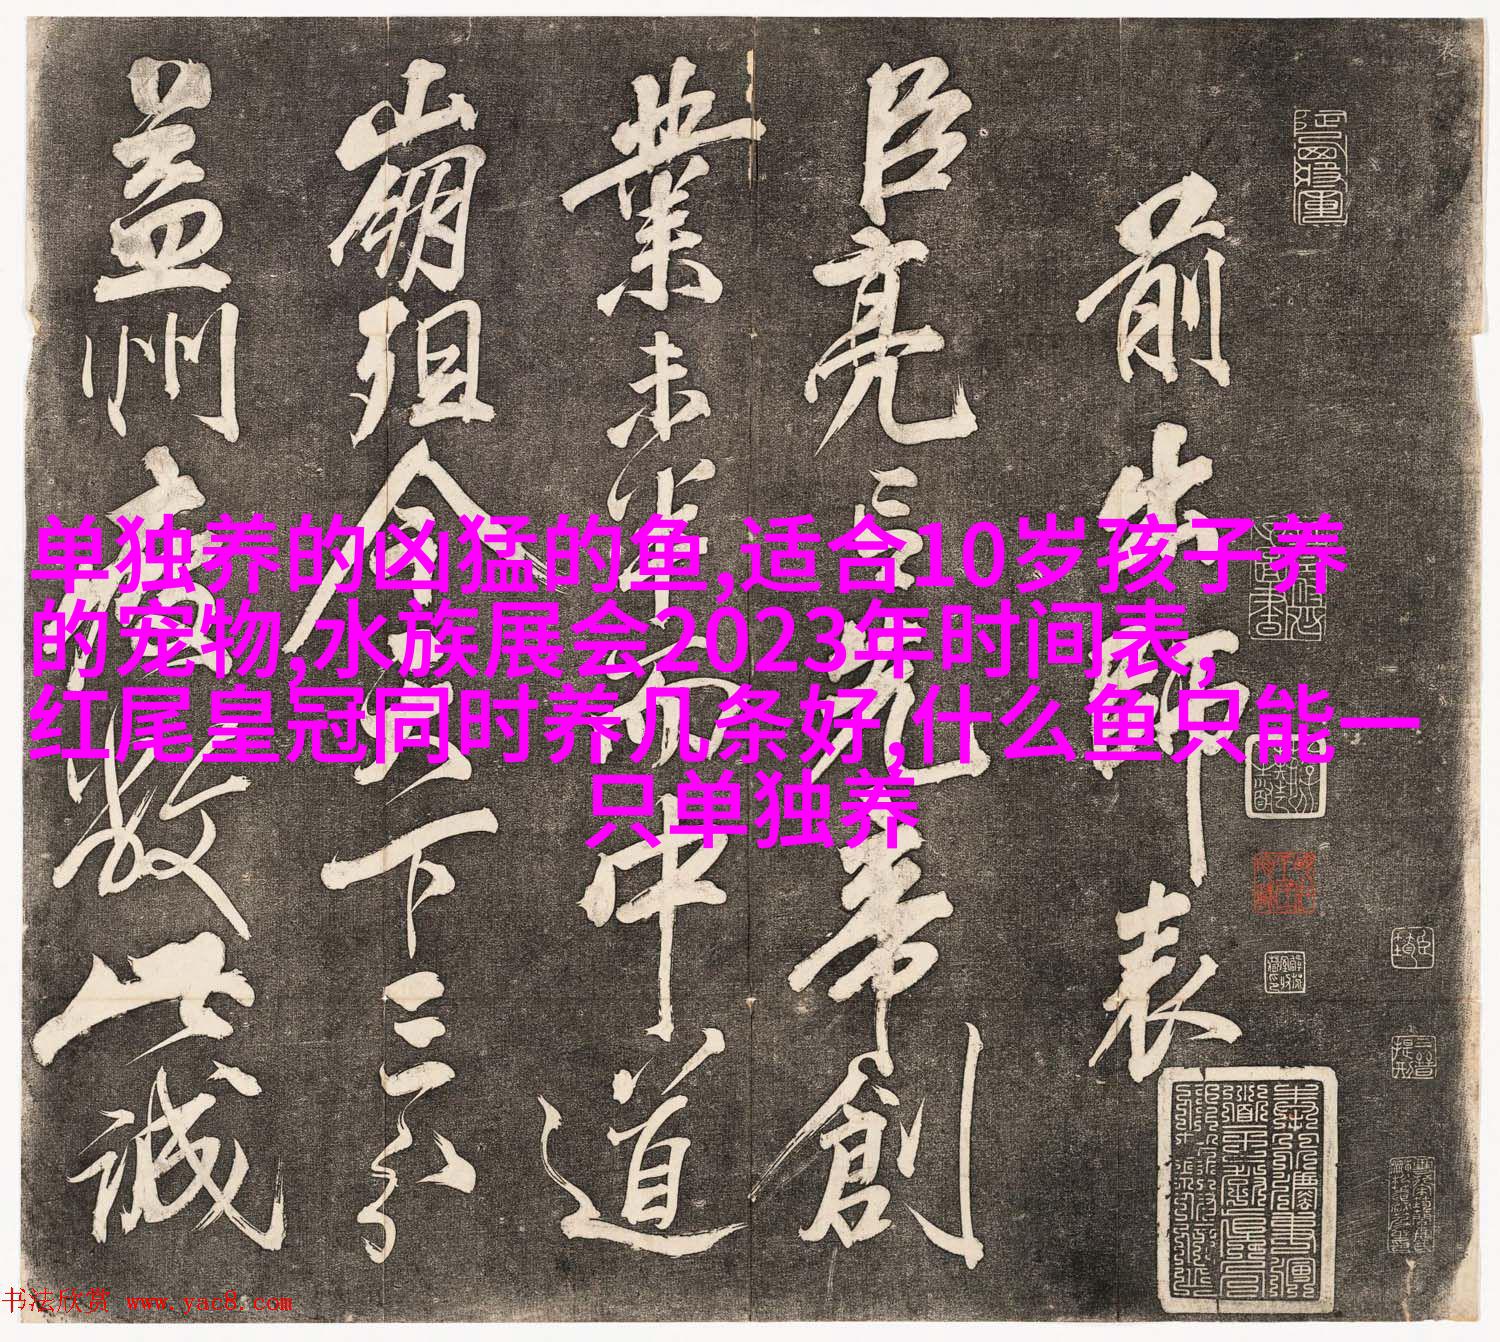 前出師表
臣亮言先帝創
業未半而中道
崩殂今天下三分
益州疲敝此誠
单独养的凶猛的鱼,适合10岁孩子养
的宠物,水族展会2023年时间表,
红尾皇冠同时养几条好,什么鱼只能一
只单独养
书法欣赏 www.yac8.com